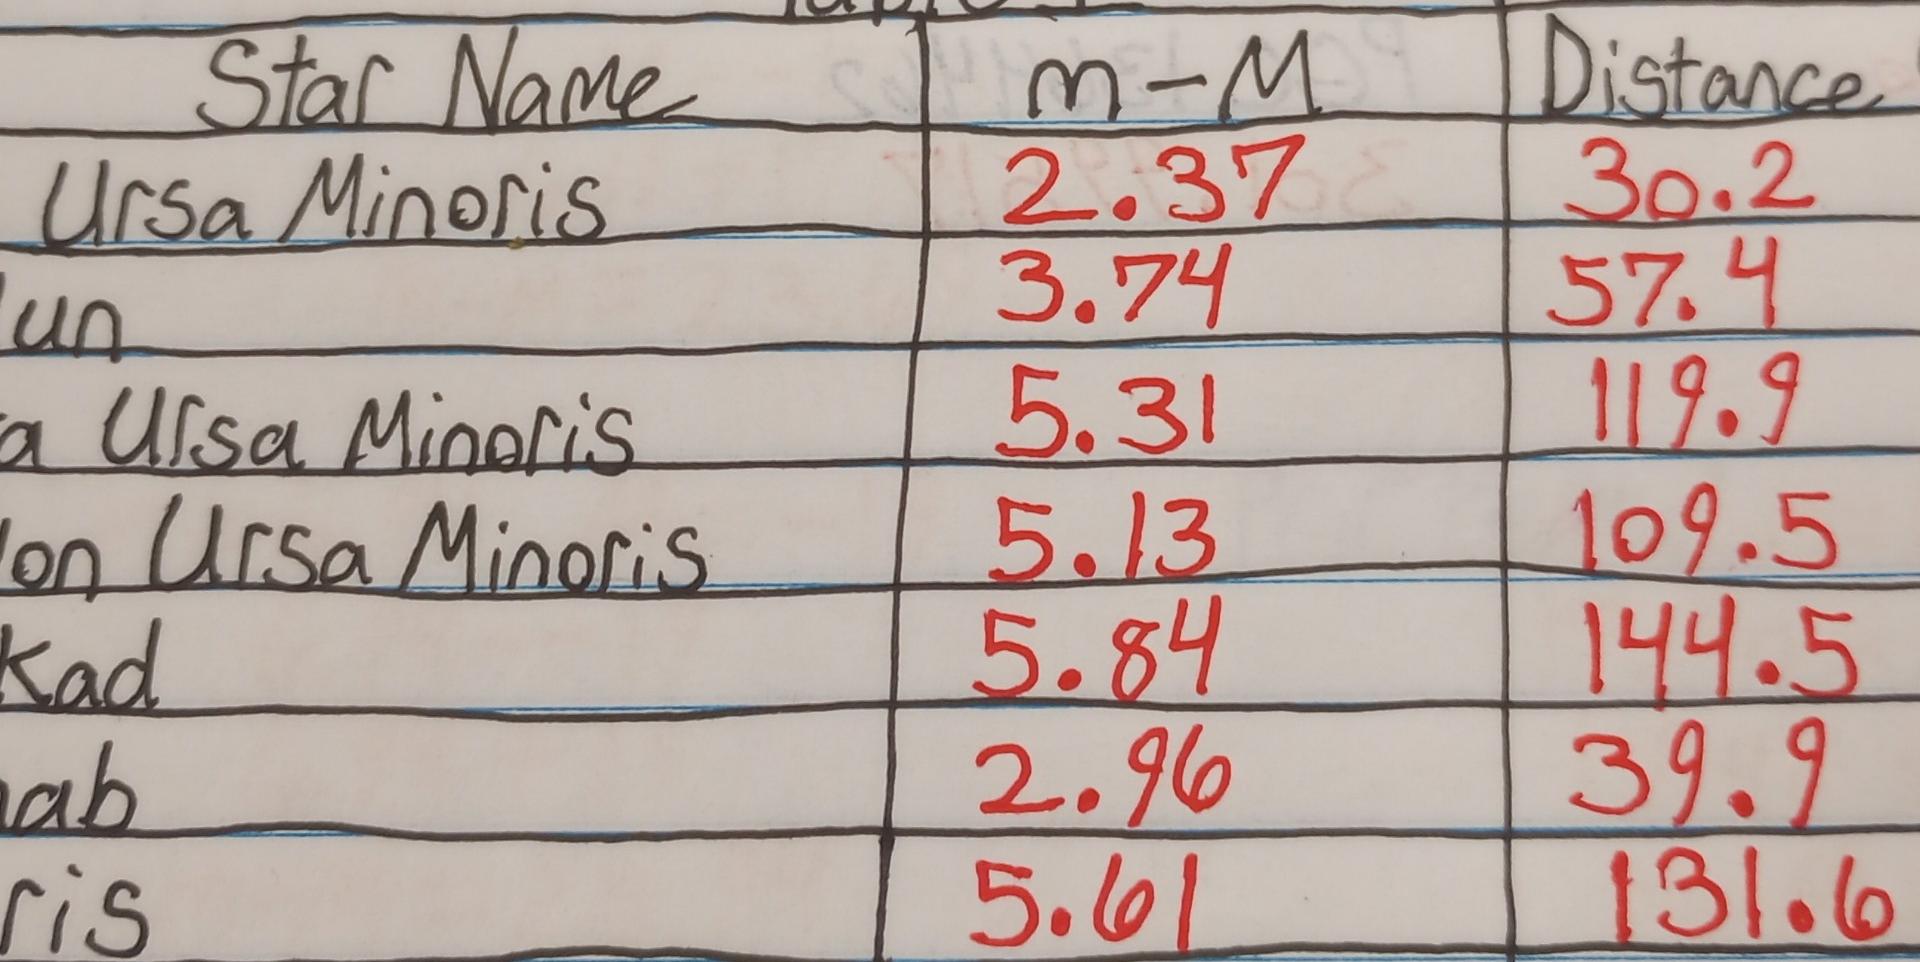 Star Name m-M Distance
Ursa Minoris 2.37 30.2
un 3.74 57.4
a Ursa Minoris 5.31 119.9
on Ursa Minoris 5.13 109.5
Kad 5.84 144.5
ab 2.96 39.9
ris 5.61 131.6